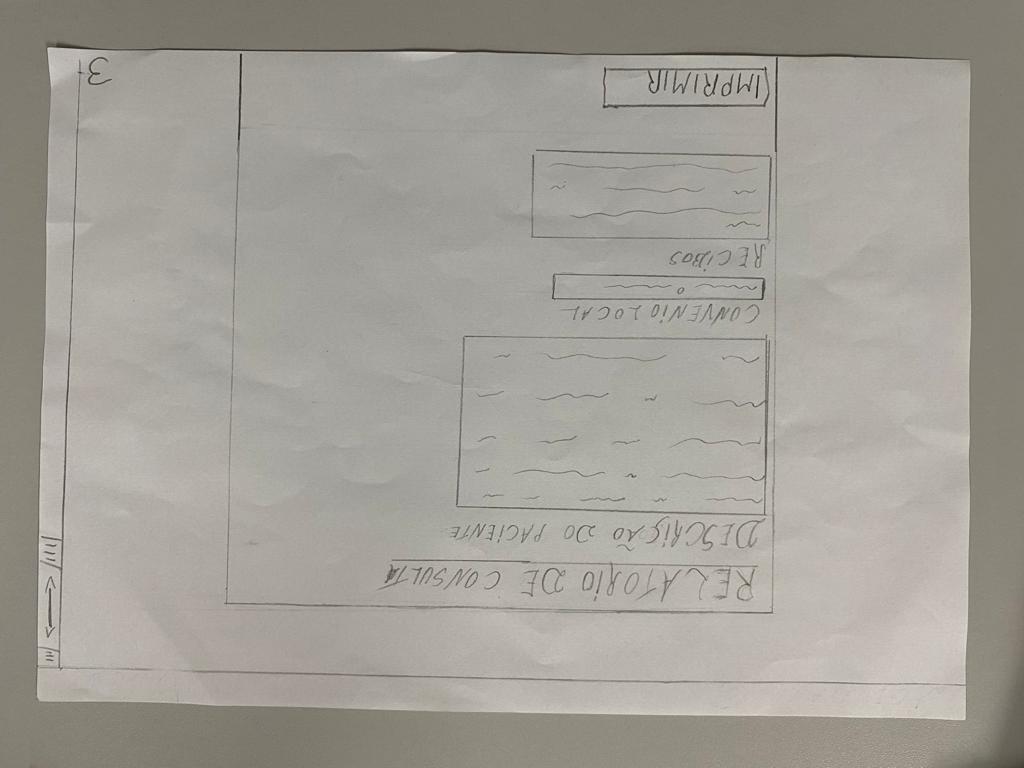 RELATORIO DE CONSULTA
DESCRIÇÃO DO PACIENTE
CONVENIO LOCAL
RECIBOS
IMPRIMIR
3